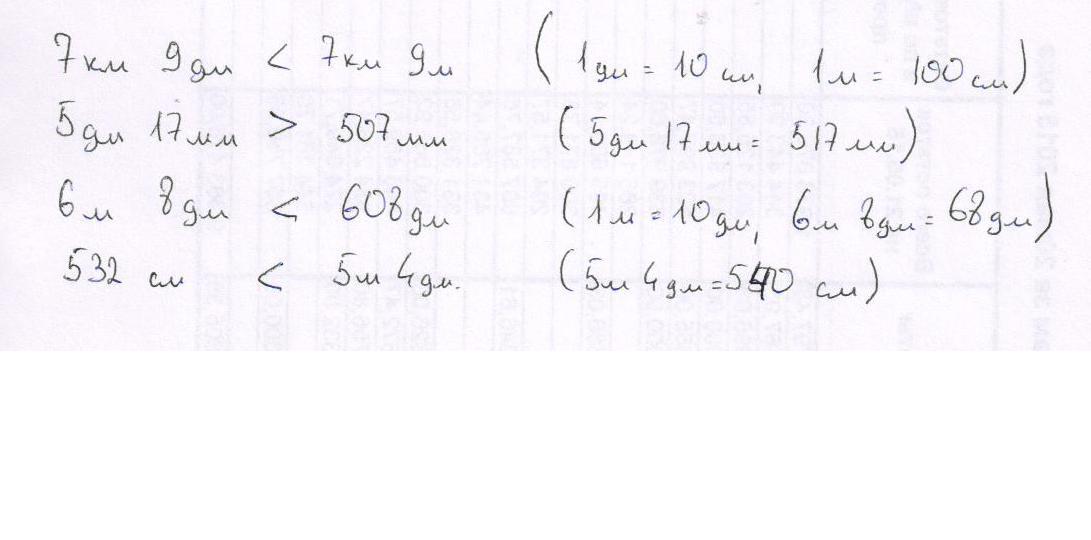 7км 9дм < 7км 9м (1дм = 10 см, 1м = 100 см)
5дм 17мм > 507мм (5дм 17мм = 517мм)
6м 8дм < 608дм (1м = 10дм, 6м 8дм = 68дм)
532 см < 5м 4дм. (5м 4дм = 540 см)